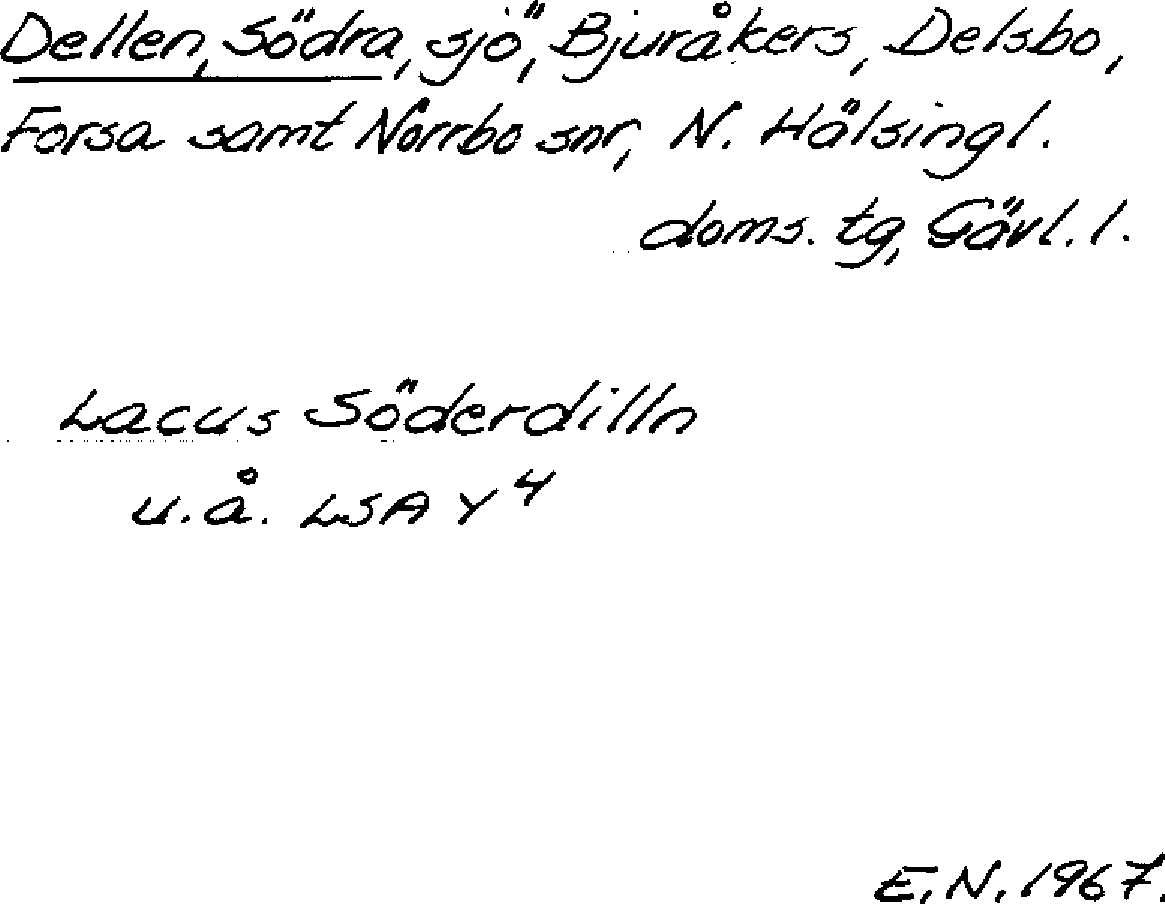 Dellen, Södra, sjö, Bjuråkers, Delsbo,
Forsa samt Norrbo snr, N. Hälsingl.
doms. tg, Gävl. l.
Lacus Söderdilln
u.å. LSA Y 4
E.N. 1967.